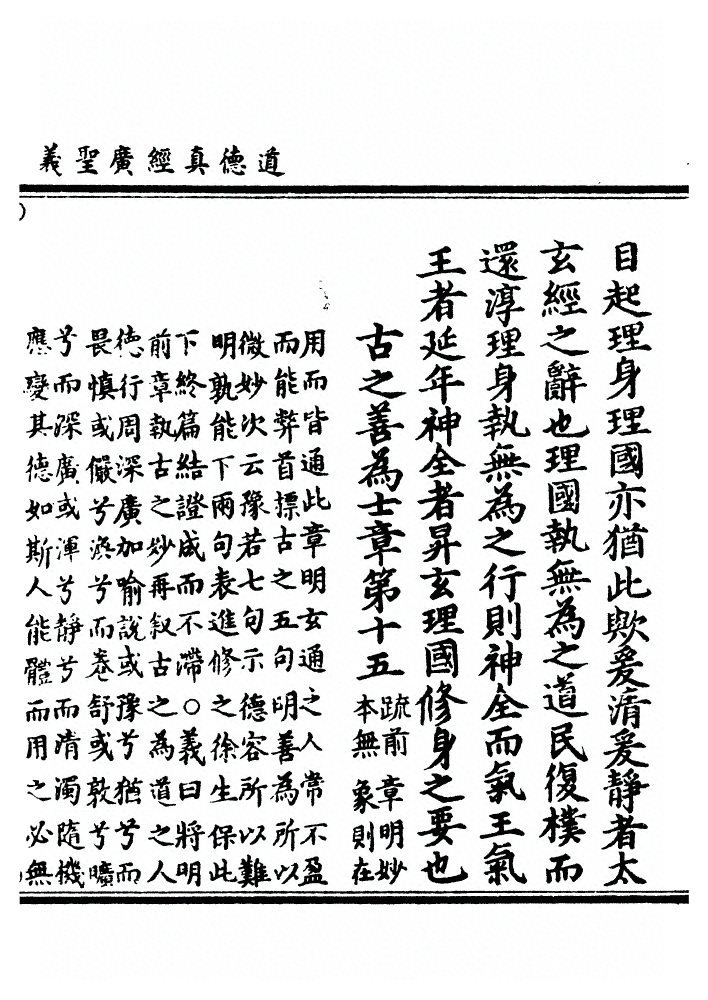 道德真經廣聖義
目起理身理國亦猶此歟爰清爰靜者太
玄經之辭也理國執無為之道民復樸而
還淳理身執無為之行則神全而氣王氣
王者延年神全者昇玄理國修身之要也
古之善為士章第十五
疏前章明妙
本無象則在
用而皆通此章明玄通之人常不盈
而能弊首摽古之五句明善為所以
微妙次云豫若七句示德容所以難
明孰能下兩句表進修之徐生保此
下終篇結證成而不滯○義曰將明
前章執古之妙再叙古之為道之人
德行周深廣加喻說或豫兮猶兮而
畏慎或儼兮渙兮而卷舒或敦兮曠
兮而深廣或渾兮靜兮而清濁隨機
應變其德如斯人能體而用之必無